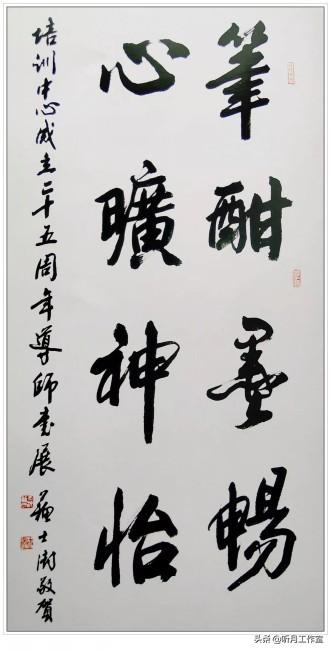 筆酣墨暢
心曠神怡
培训中心成立二十五周年導師書展
蘇士澍敬賀
头条@听月工作室